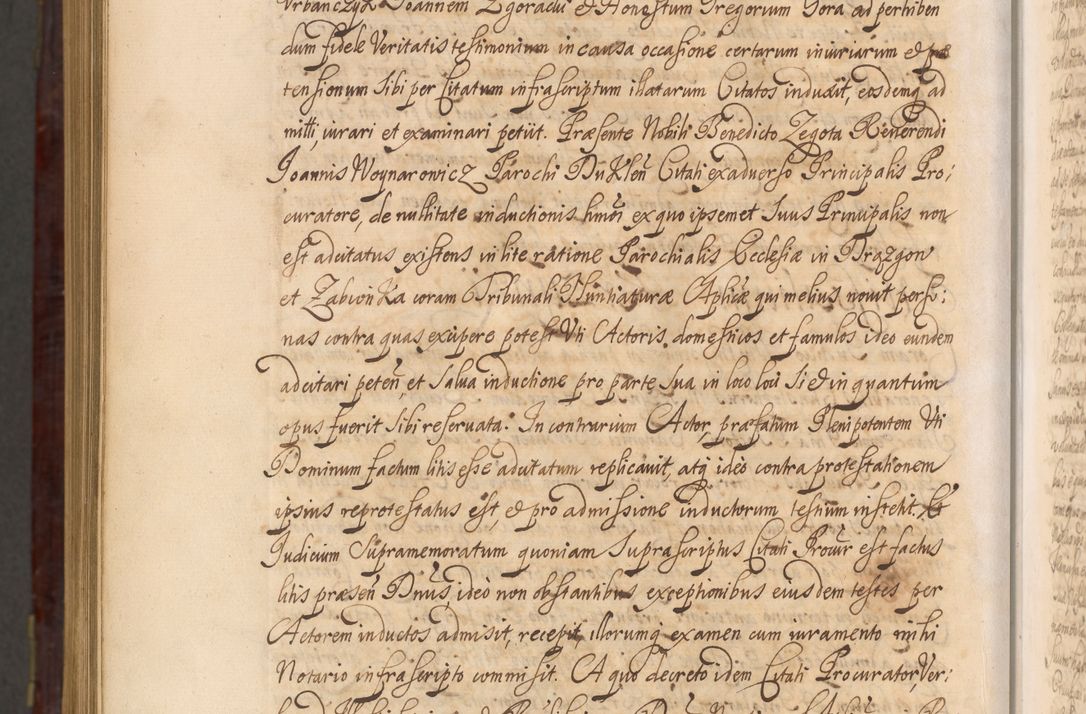 Urbanczyk Joannem Zgoradu et Honestum Gregorium Gora ad perhiben
dum fidele Veritatis testimonium in causa occasione certarum iniuriarum et præ
tensionum Sibi per Citatum infrascriptum illatarum Citatos induxit, eosdemq ad
mitti, iurari et examinari petiit. Præsente Nobili Benedicto Zegota Reuerendi
Joannis Woynarowicz Parochi Duklen Citati ex aduerso Principalis Pro:
curatore, de nullitate inductionis hmoi ex quo ipsemet Suus Principalis non
est adcitatus existens in lite ratione Parochialis Ecclesiæ in Drązgow
et Zabionka coram Tribunali Nuntiaturæ Aplicæ qui melius nouit perso:
nas contra quas excipere potest Uti Actoris domesticos et famulos ideo eundem
adcitari peten, et Salua inductione pro parte Sua in loco loci Si et in quantum
opus fuerit Sibi reseruata. In contrarium Actor præfatum Plenipotentem Uti
Dominum factum litis esse adcitatum replicauit, atq ideo contra protestationem
ipsius reprotestatus est, et pro admissione inductorum testium institit. Et
Judicium Supramemoratum quoniam Suprascriptus Citati Procur est factus
litis præsen Dnus, ideo non obstantibus exceptionibus eiusdem testes per
Actorem inductos admisit, recepit, illorumq examen cum iuramento mihi
Notario infrascripto commisit. A quo decreto idem Citati Procurator, Ver: